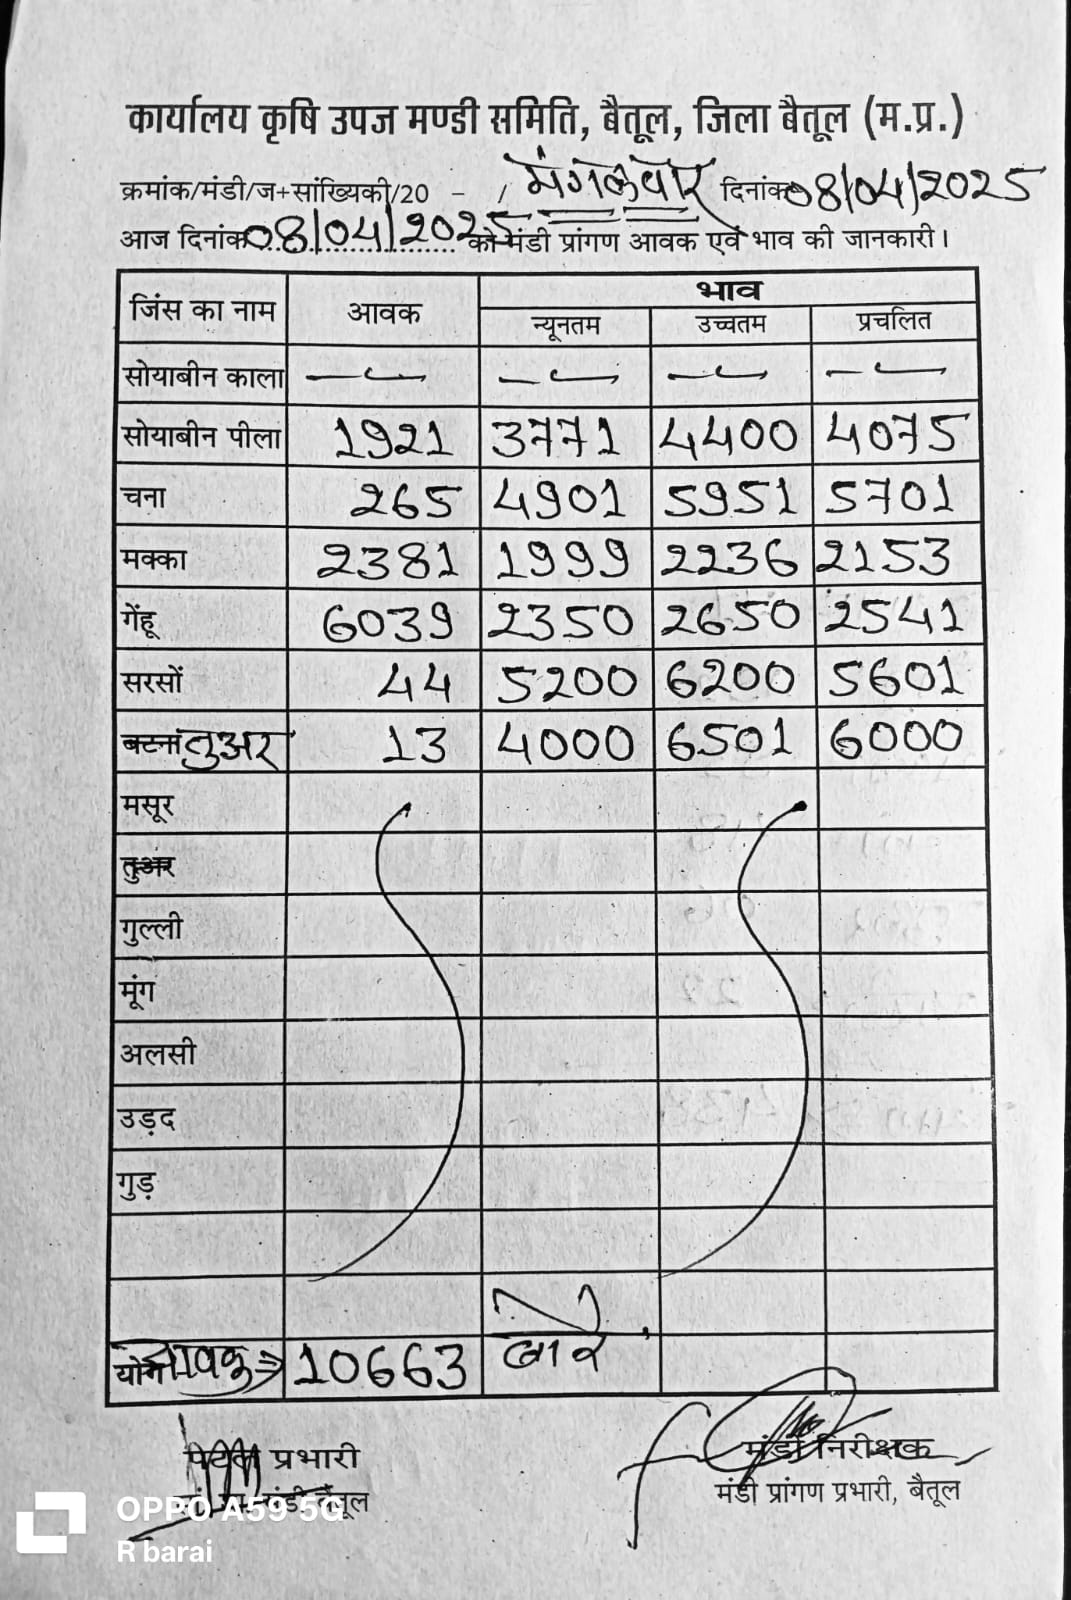 कार्यालय कृषि उपज मण्डी समिति, बैतूल, जिला बैतूल (म.प्र.)
क्रमांक/मंडी/ज+सांख्यिकी/20 - / मंगलवार दिनांक 08/04/2025
आज दिनांक 08/04/2025 को मंडी प्रांगण आवक एवं भाव की जानकारी।
जिंस का नाम आवक भाव
न्यूनतम उच्चतम प्रचलित
सोयाबीन काला — — — —
सोयाबीन पीला 1921 3771 4400 4075
चना 265 4901 5951 5701
मक्का 2381 1999 2236 2153
गेंहू 6039 2350 2650 2541
सरसों 44 5200 6200 5601
बटना तुअर 13 4000 6501 6000
मसूर
तुअर
गुल्ली
मूंग
अलसी
उड़द
गुड़
योग आवक⇒ 10663 बोरे
प्रभारी मंडी निरीक्षक
मंडी बैतूल मंडी प्रांगण प्रभारी, बैतूल
OPPO A59 5G
R barai